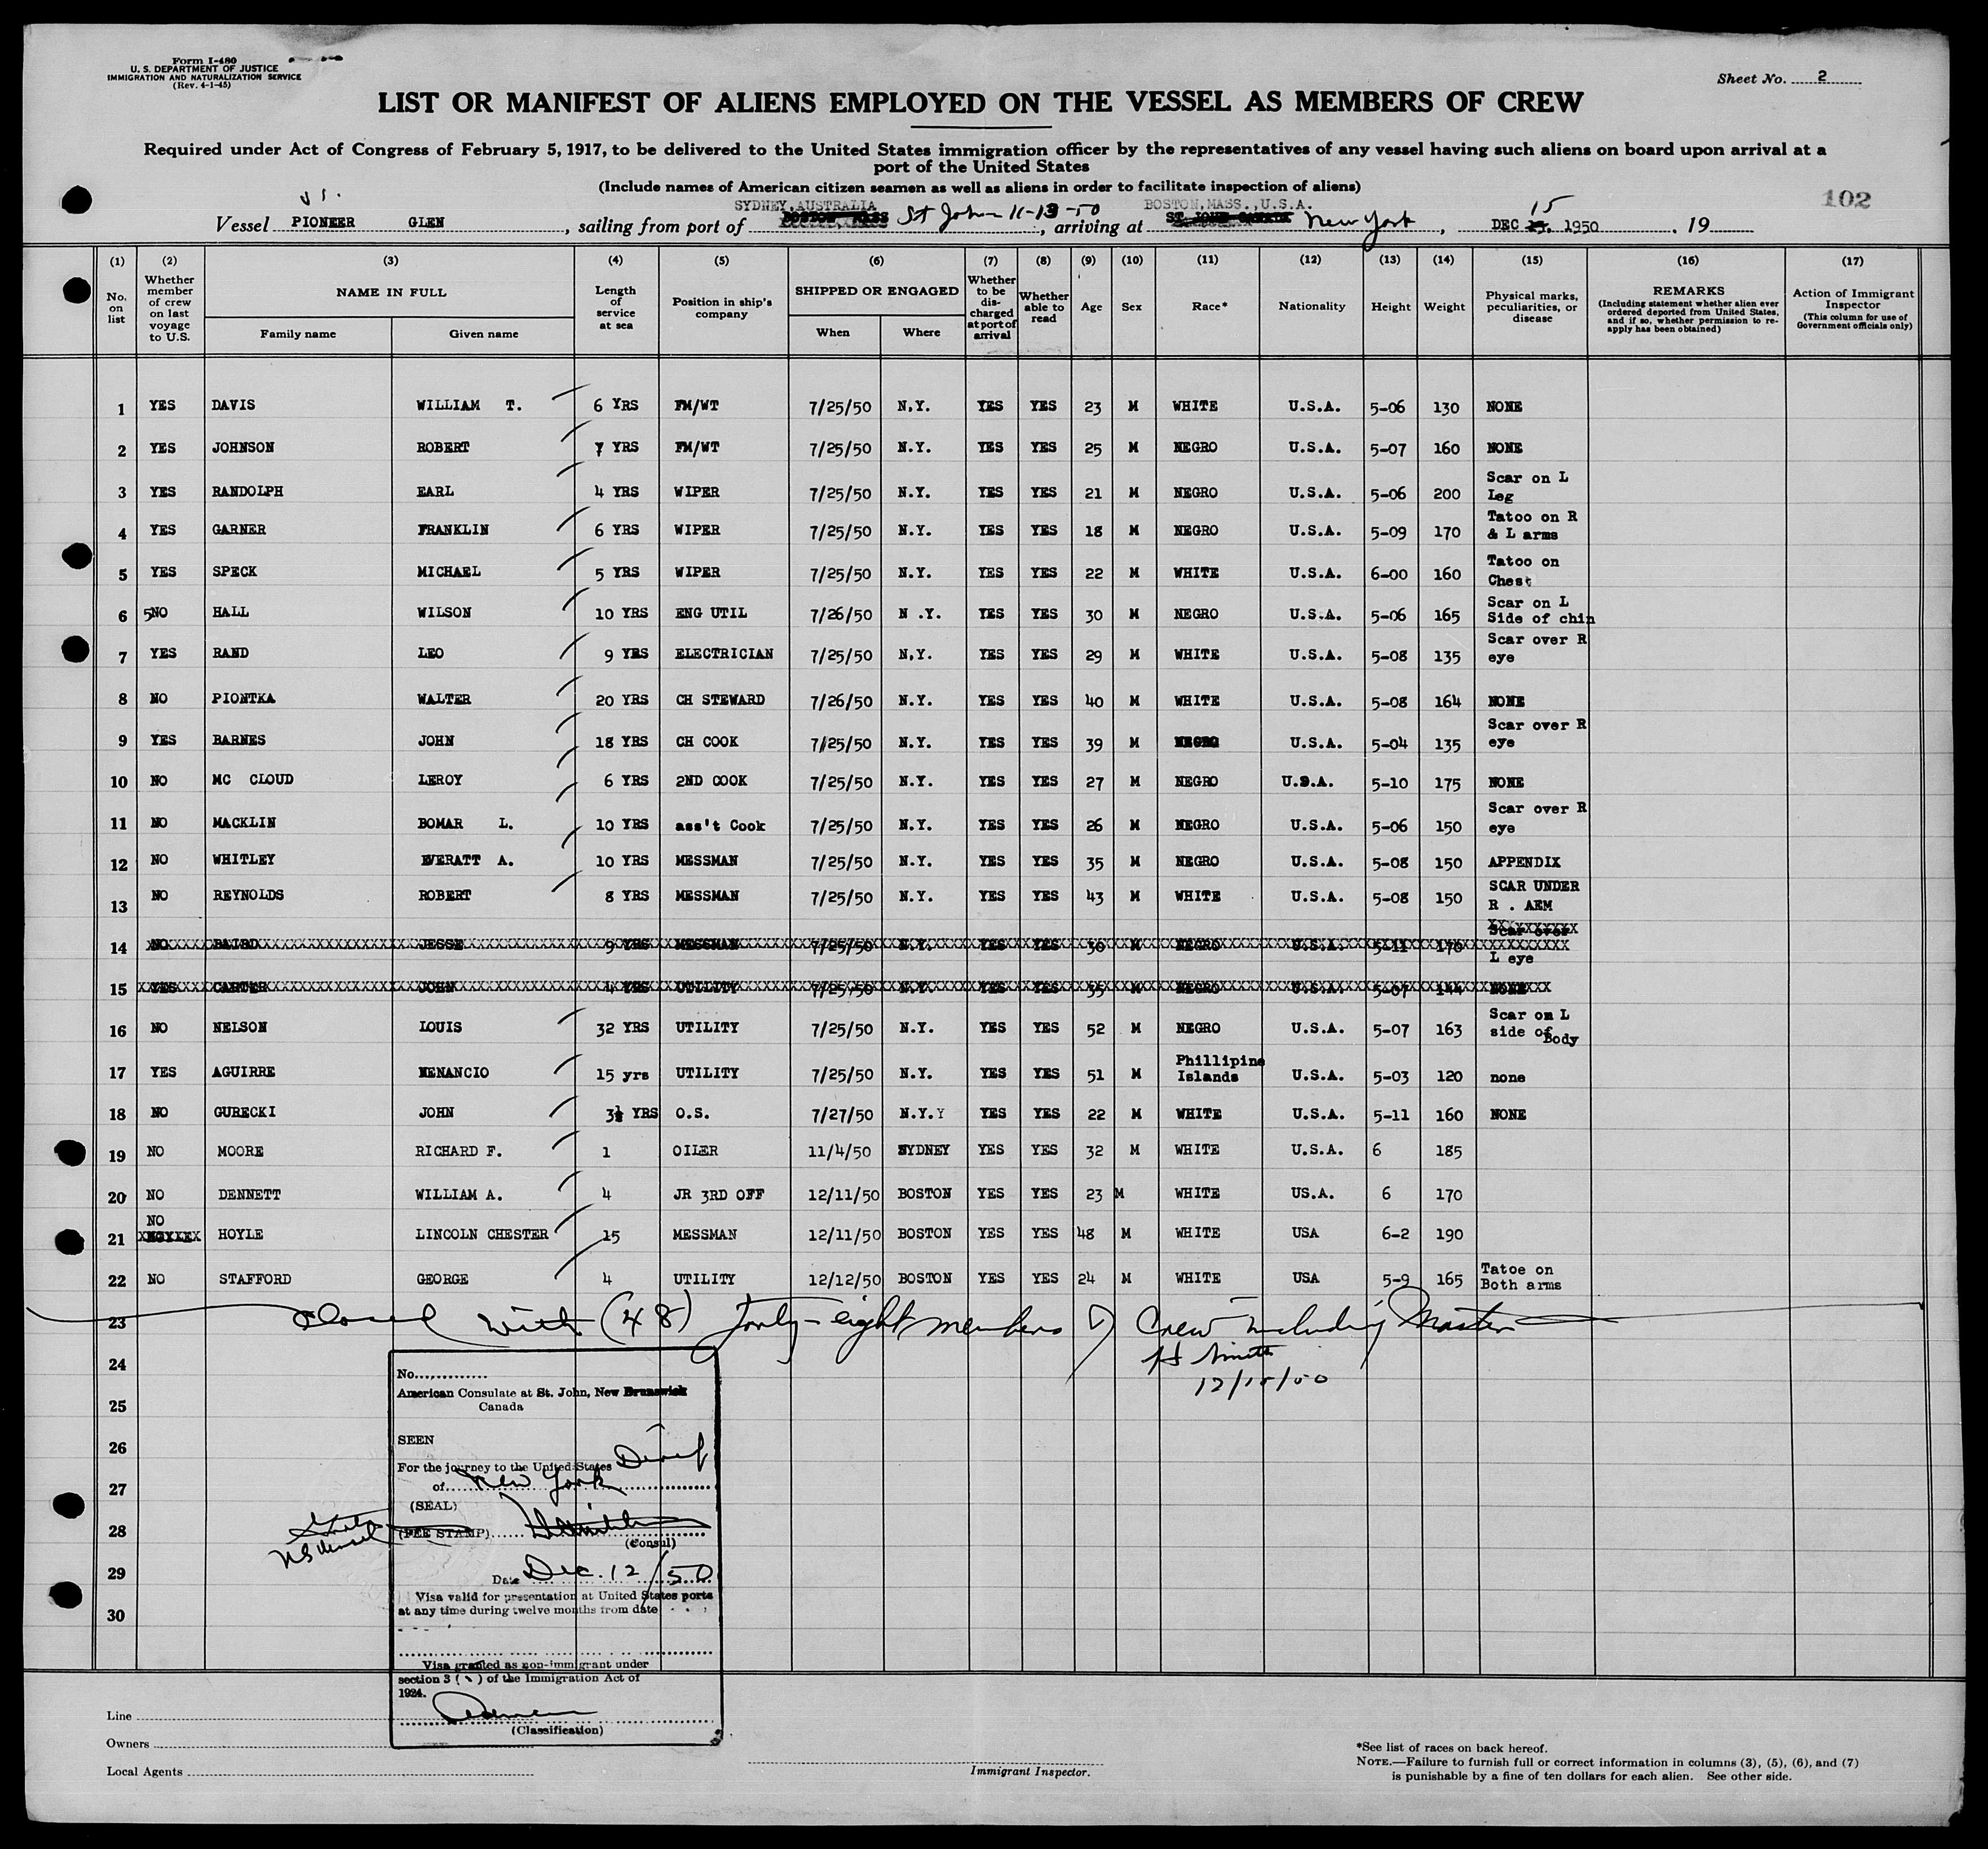 Form I-480
U. S. DEPARTMENT OF JUSTICE
IMMIGRATION AND NATURALIZATION SERVICE
(Rev. 4-1-45)
Sheet No. 2
LIST OR MANIFEST OF ALIENS EMPLOYED ON THE VESSEL AS MEMBERS OF CREW
Required under Act of Congress of February 5, 1917, to be delivered to the United States immigration officer by the representatives of any vessel having such aliens on board upon arrival at a
port of the United States
(Include names of American citizen seamen as well as aliens in order to facilitate inspection of aliens)
102
SYDNEY, AUSTRALIA BOSTON, MASS., U.S.A. 15
Vessel PIONEER GLEN, sailing from port of BOSTON MASS St John 11-13-50, arriving at ST. JOHN CANADA New York, DEC 1950, 19
(1) (2) (3) (4) (5) (6) (7) (8) (9) (10) (11) (12) (13) (14) (15) (16) (17)
No. on list
Whether member of crew on last voyage to U.S.
NAME IN FULL
Family name Given name
Length of service at sea
Position in ship's company
SHIPPED OR ENGAGED
When Where
Whether to be discharged at port of arrival
Whether able to read
Age
Sex
Race*
Nationality
Height
Weight
Physical marks, peculiarities, or disease
REMARKS
(Including statement whether alien ever ordered deported from United States, and if so, whether permission to re-apply has been obtained)
Action of Immigrant Inspector
(This column for use of Government officials only)
1 YES DAVIS WILLIAM T. 6 YRS FM/WT 7/25/50 N.Y. YES YES 23 M WHITE U.S.A. 5-06 130 NONE
2 YES JOHNSON ROBERT 7 YRS FM/WT 7/25/50 N.Y. YES YES 25 M NEGRO U.S.A. 5-07 160 NONE
3 YES RANDOLPH EARL 4 YRS WIPER 7/25/50 N.Y. YES YES 21 M NEGRO U.S.A. 5-06 200 Scar on L Leg
4 YES GARNER FRANKLIN 6 YRS WIPER 7/25/50 N.Y. YES YES 18 M NEGRO U.S.A. 5-09 170 Tatoo on R & L arms
5 YES SPECK MICHAEL 5 YRS WIPER 7/25/50 N.Y. YES YES 22 M WHITE U.S.A. 6-00 160 Tatoo on Chest
6 5NO HALL WILSON 10 YRS ENG UTIL 7/26/50 N .Y. YES YES 30 M NEGRO U.S.A. 5-06 165 Scar on L Side of chin
7 YES RAND LEO 9 YRS ELECTRICIAN 7/25/50 N.Y. YES YES 29 M WHITE U.S.A. 5-08 135 Scar over R eye
8 NO PIONTKA WALTER 20 YRS CH STEWARD 7/26/50 N.Y. YES YES 40 M WHITE U.S.A. 5-08 164 NONE
9 YES BARNES JOHN 18 YRS CH COOK 7/25/50 N.Y. YES YES 39 M NEGRO U.S.A. 5-04 135 Scar over R eye
10 NO MC CLOUD LEROY 6 YRS 2ND COOK 7/25/50 N.Y. YES YES 27 M NEGRO U.S.A. 5-10 175 NONE
11 NO MACKLIN BOMAR L. 10 YRS ass't Cook 7/25/50 N.Y. YES YES 26 M NEGRO U.S.A. 5-06 150 Scar over R eye
12 NO WHITLEY EVERATT A. 10 YRS MESSMAN 7/25/50 N.Y. YES YES 35 M NEGRO U.S.A. 5-08 150 APPENDIX
13 NO REYNOLDS ROBERT 8 YRS MESSMAN 7/25/50 N.Y. YES YES 43 M WHITE U.S.A. 5-08 150 SCAR UNDER R . ARM
14 NO BAIRD JESSE 9 YRS MESSMAN 7/25/50 N.Y. YES YES 30 M NEGRO U.S.A. 5-11 170 Scar over L eye
15 YES CARTER JOHN 4 YRS UTILITY 7/25/50 N.Y. YES YES 35 M NEGRO U.S.A. 5-07 144 NONE
16 NO NELSON LOUIS 32 YRS UTILITY 7/25/50 N.Y. YES YES 52 M NEGRO U.S.A. 5-07 163 Scar on L side of Body
17 YES AGUIRRE VENANCIO 15 yrs UTILITY 7/25/50 N.Y. YES YES 51 M Phillipine Islands U.S.A. 5-03 120 none
18 NO GURECKI JOHN 3½ YRS O.S. 7/27/50 N.Y.Y YES YES 22 M WHITE U.S.A. 5-11 160 NONE
19 NO MOORE RICHARD F. 1 OILER 11/4/50 SYDNEY YES YES 32 M WHITE U.S.A. 6 185
20 NO DENNETT WILLIAM A. 4 JR 3RD OFF 12/11/50 BOSTON YES YES 23 M WHITE US.A. 6 170
21 NO HOYLE LINCOLN CHESTER 15 MESSMAN 12/11/50 BOSTON YES YES 48 M WHITE USA 6-2 190
22 NO STAFFORD GEORGE 4 UTILITY 12/12/50 BOSTON YES YES 24 M WHITE USA 5-9 165 Tatoe on Both arms
23 Closed with (48) forty-eight members of Crew including Master
24
12/15/50
25
26
27
28
29
30
No.
American Consulate at St. John, New Brunswick
Canada
SEEN
For the journey to the United States Direct
of New York
(SEAL)
(FEE STAMP)
(Consul)
Date Dec. 12/50
Visa valid for presentation at United States ports
at any time during twelve months from date
Visa granted as non-immigrant under
section 3 ( ) of the Immigration Act of
1924.
(Classification)
Line
Owners
Local Agents
Immigrant Inspector.
*See list of races on back hereof.
NOTE.—Failure to furnish full or correct information in columns (3), (5), (6), and (7)
is punishable by a fine of ten dollars for each alien. See other side.